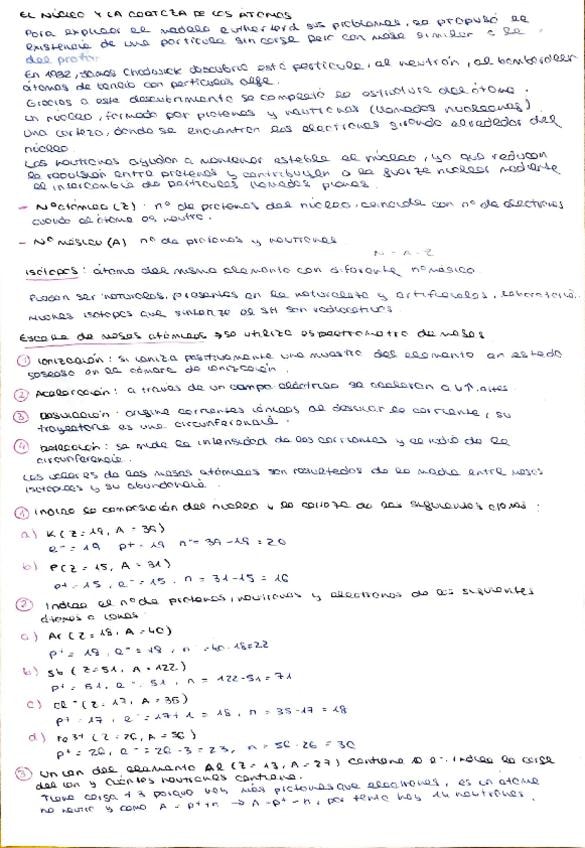 EL NÚCLEO Y LA CORTEZA DE LOS ÁTOMOS
Para explicar el modelo Rutherford sus problemas, se propuso la
existencia de una partícula sin carga pero con masa similar a la
del protón.
En 1932, James Chadwick descubrió esta partícula, el neutrón, al bombardear
átomos de berilio con partículas alfa.
Gracias a este descubrimiento se completó la estructura del átomo.
Un núcleo, formado por protones y neutrones (llamados nucleones).
Una corteza, donde se encuentran los electrones girando alrededor del
núcleo.
Los neutrones ayudan a mantener estable el núcleo, ya que reducen
la repulsión entre protones y contribuyen a la fuerza nuclear mediante
el intercambio de partículas llamadas piones.
- Nº atómico (Z): nº de protones del núcleo, coincide con nº de electrones
cuando el átomo es neutro.
- Nº másico (A) nº de protones y neutrones
N = A - Z
Isótopos: átomo del mismo elemento con diferente nº másico
Pueden ser naturales, presentes en la naturaleza y artificiales, laboratorio.
Muchos isótopos que son radiactivos.
Escala de masas atómicas → se utiliza espectrómetro de masas
① Ionización: se ioniza positivamente una muestra del elemento en estado
gaseoso en la cámara de ionización.
② Aceleración: a través de un campo eléctrico se aceleran a v↑.
③ Desviación: origina corrientes iónicas al desviar la corriente, su
trayectoria es una circunferencia.
④ Detección: se mide la intensidad de las corrientes y el radio de la
circunferencia.
Los valores de las masas atómicas son resultados de la media entre masas
isotópicas y su abundancia.
① Indica la composición del núcleo y la corteza de las siguientes :
a) K (Z = 19, A = 39)
e⁻ = 19 p⁺ = 19 n = 39 - 19 = 20
b) P (Z = 15, A = 31)
p⁺ = 15, e⁻ = 15, n = 31-15 = 16
② Indica el nº de protones, neutrones y electrones de los siguientes
átomos o iones.
a) Ar (Z = 18, A = 40)
p⁺ = 18, e⁻ = 18, n = 40-18=22
b) Sb (Z=51, A = 122)
p⁺ = 51, e⁻ = 51, n = 122-51 = 71
c) Cl⁻ (Z = 17, A = 35)
p⁺ = 17, e⁻ = 17+1 = 18, n = 35-17 = 18
d) Fe³⁺ (Z = 26, A = 56)
p⁺ = 26, e⁻ = 26-3 = 23, n = 56-26 = 30
③ Un ion del elemento Al (Z = 13, A = 27) contiene 10 e⁻. Indica la carga
del ion y cuántos neutrones contiene.
Tiene carga +3 porque hay más protones que electrones, es un átomo
no neutro y como A = p⁺+n → A - p⁺ = n, por tanto hay 14 neutrones.